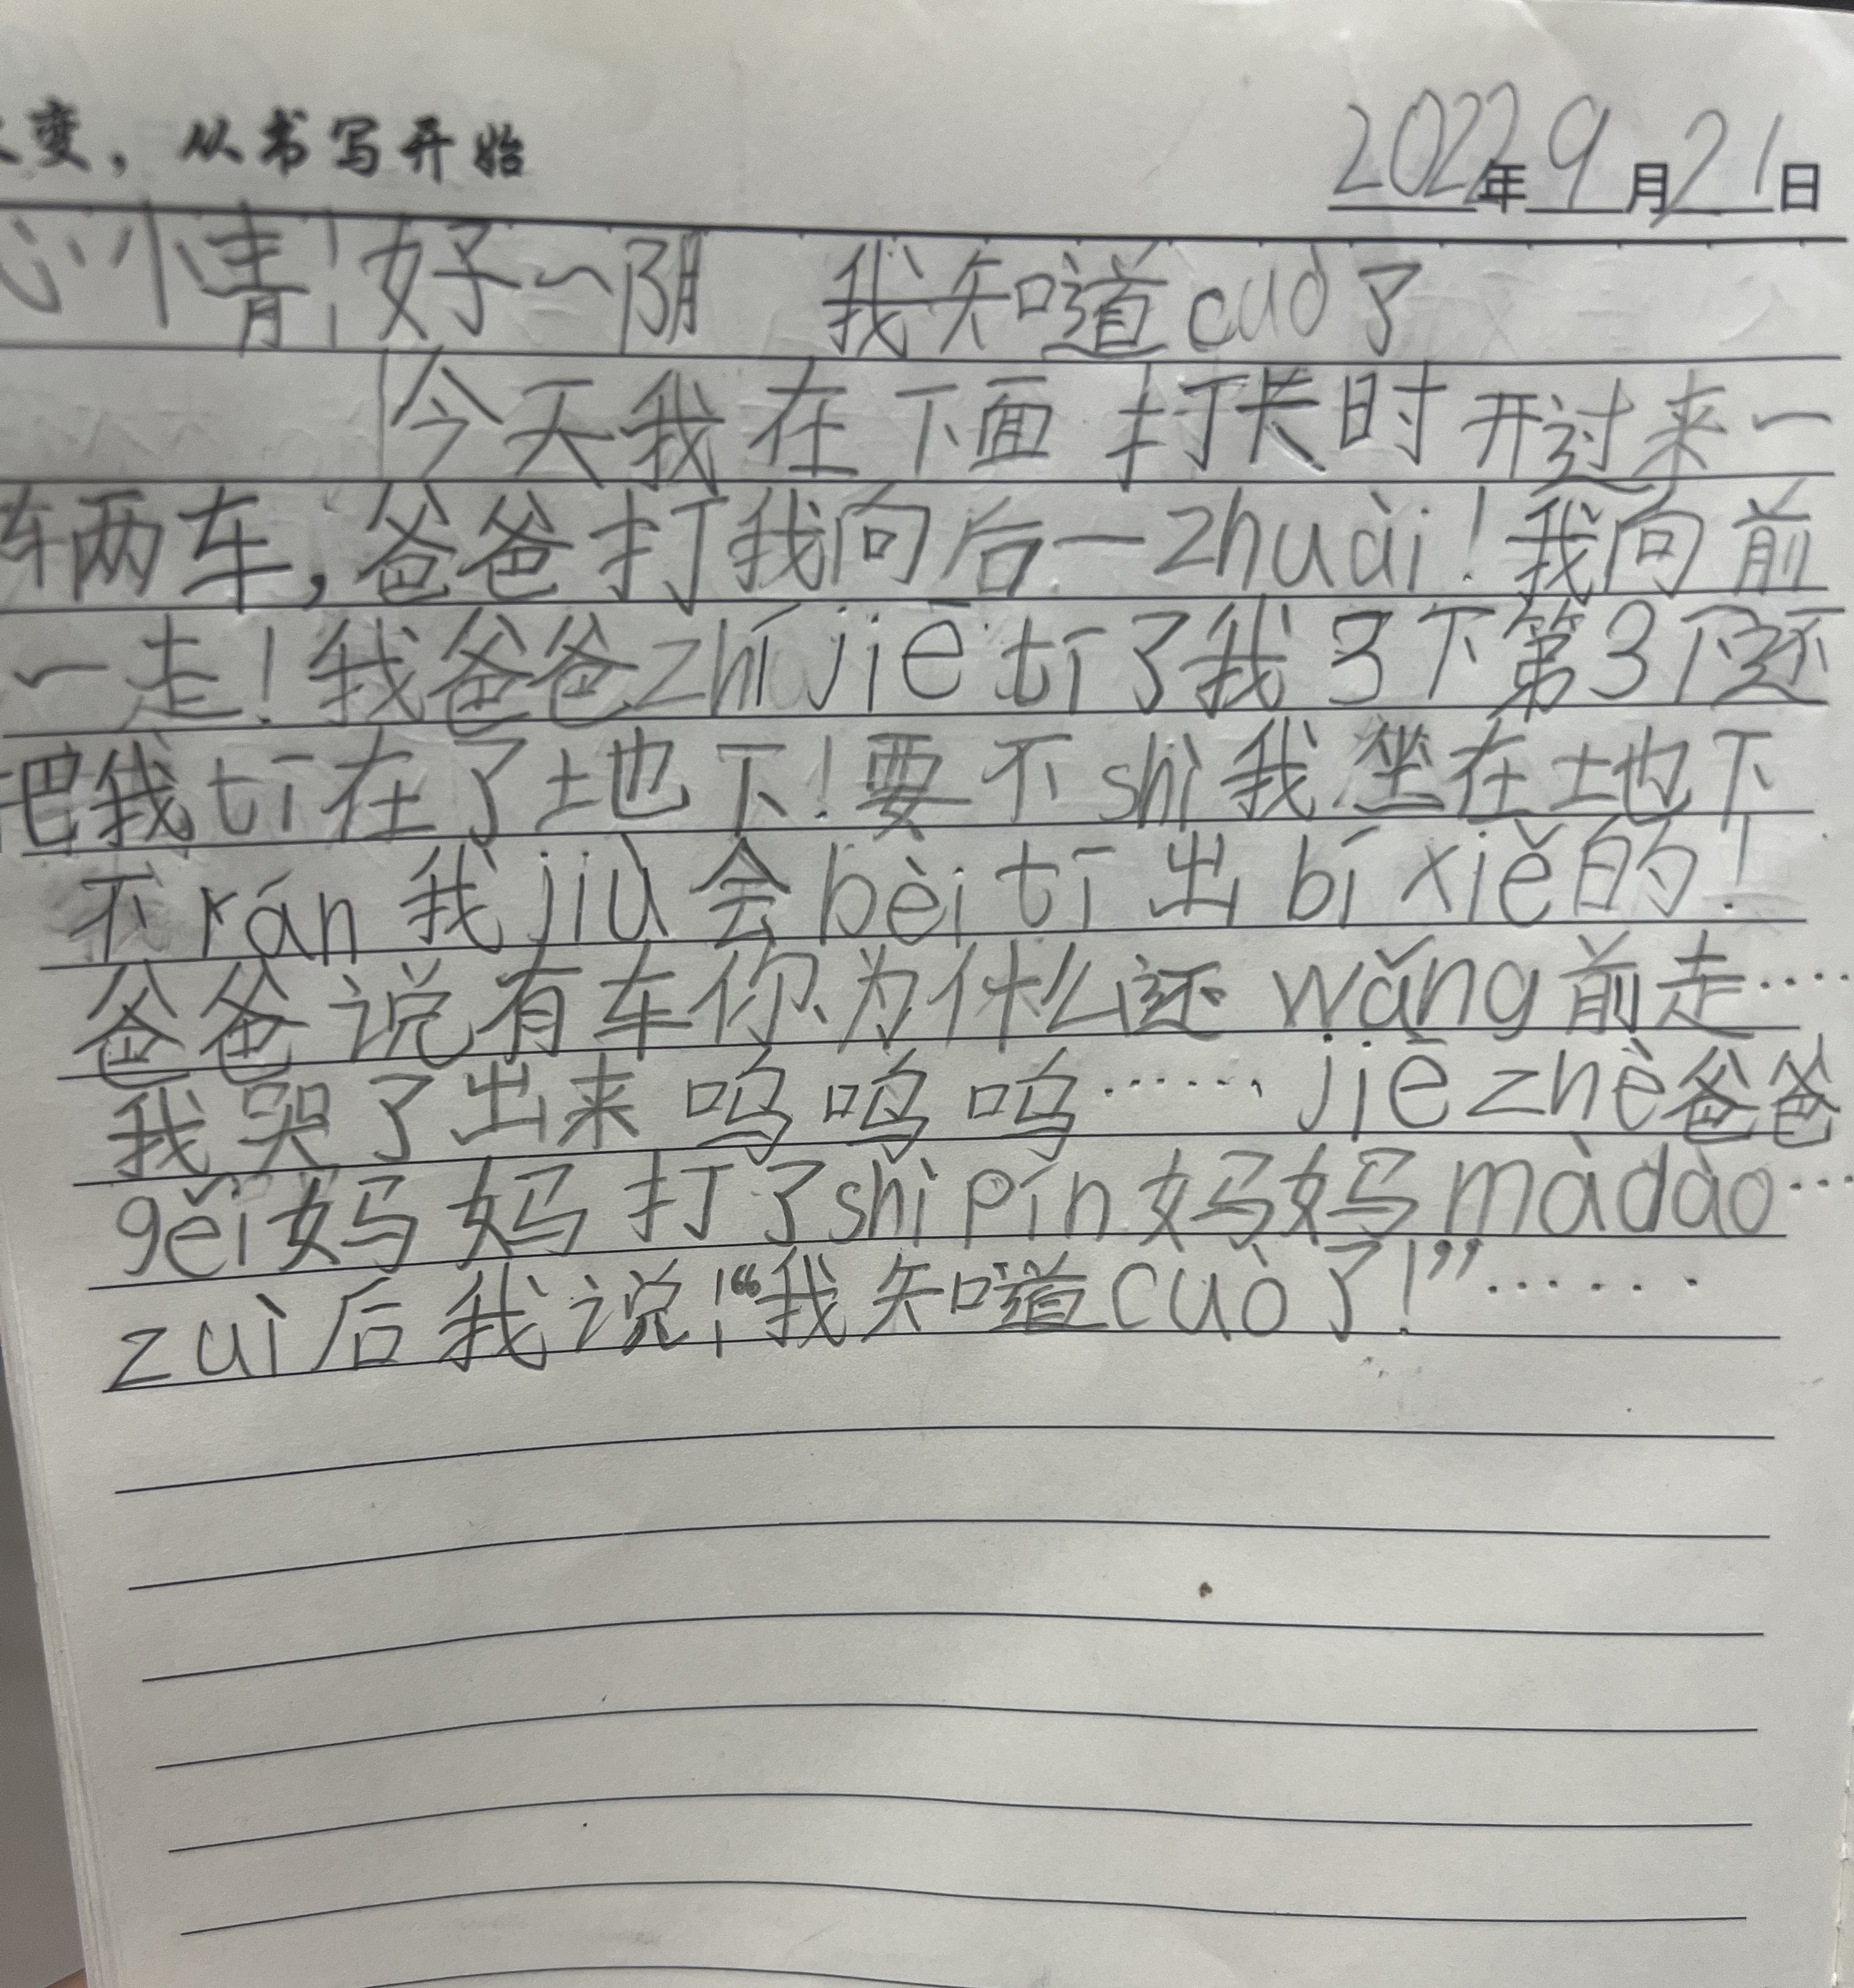 变，从书写开始
2022年9月21日
心情：好～阴 我知道cuò了
今天我在下面打卡时开过来一
车两车，爸爸打我向后一zhuài！我向前
一走！我爸爸zhíjiē tī了我3下第3下还
把我tī在了地下！要不shì我坐在地下
不rán我jiù会bèi tī出bí xiě的！
爸爸说有车你为什么还wǎng前走……
我哭了出来呜呜呜……jiē zhè爸爸
gěi妈妈打了shì pín妈妈màdào…
zuì后我说：“我知道cuò了！”……